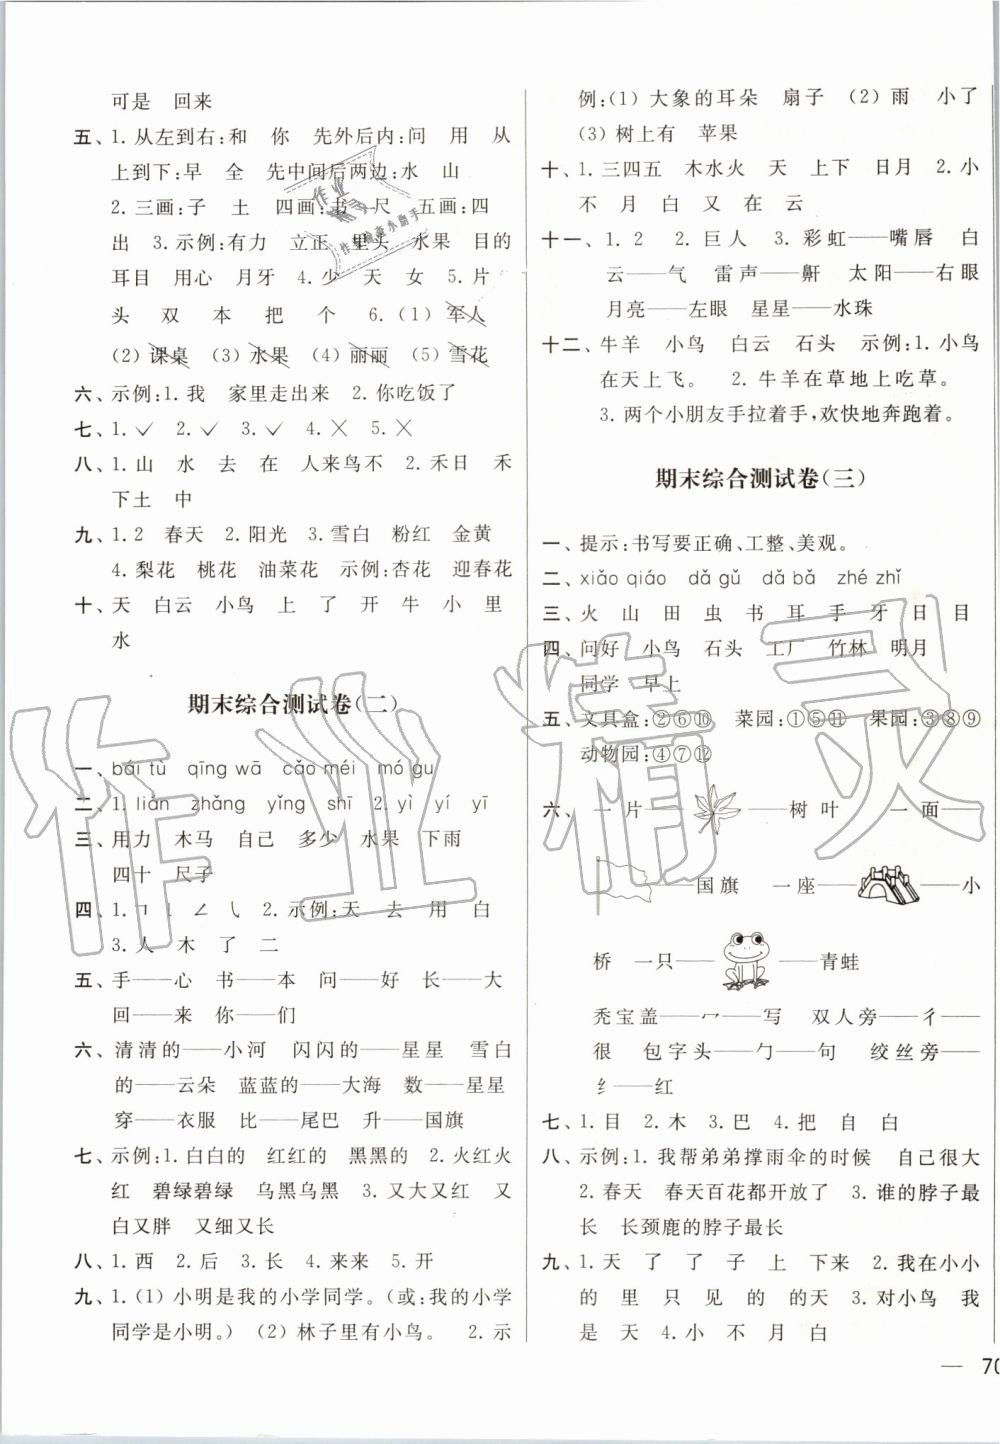 可是 回来
五、1.从左到右:和 你 先外后内:问 用 从
上到下:早 全 先中间后两边:水 山
2.三画:子 土 四画:书 尺 五画:四
出 3.示例:有力 立正 里头 水果 目的
耳目 用心 月牙 4.少 天 女 5.片
头 双 本 把 个 6.(1)军人
(2)课桌 (3)水果 (4)丽丽 (5)雪花
六、示例:1.我 家里走出来 2.你吃饭了
七、1.✓ 2.✓ 3.✓ 4.✕ 5.✕
八、1.山 水 去 在 人来鸟不 2.禾日 禾
下土 中
九、1.2 春天 2.阳光 3.雪白 粉红 金黄
4.梨花 桃花 油菜花 示例:杏花 迎春花
十、天 白云 小鸟 上 了 开 牛 小 里
水
期末综合测试卷(二)
一、bái tù qīng wā cǎo méi mó gu
二、1.liǎn zhǎng yǐng shī 2.yì yí yī
三、用力 木马 自己 多少 水果 下雨
四十 尺子
四、1.㇕ 亅 ㄥ ㇏ 2.示例:天 去 用 白
3.人 木 了 二
五、手——心 书——本 问——好 长——大
回——来 你——们
六、清清的——小河 闪闪的——星星 雪白
的——云朵 蓝蓝的——大海 数——星星
穿——衣服 比——尾巴 升——国旗
七、示例:1.白白的 红红的 黑黑的 2.火红火
红 碧绿碧绿 乌黑乌黑 3.又大又红 又
白又胖 又细又长
八、1.西 2.后 3.长 4.来来 5.开
九、1.(1)小明是我的小学同学。(或:我的小学
同学是小明。) (2)林子里有小鸟。 2.示
例:(1)大象的耳朵 扇子 (2)雨 小了
(3)树上有 苹果
十、1.三四五 木水火 天 上下 日月 2.小
不 月 白 又 在 云
十一、1.2 2.巨人 3.彩虹——嘴唇 白
云——气 雷声——鼾 太阳——右眼
月亮——左眼 星星——水珠
十二、牛羊 小鸟 白云 石头 示例:1.小鸟
在天上飞。 2.牛羊在草地上吃草。
3.两个小朋友手拉着手,欢快地奔跑着。
期末综合测试卷(三)
一、提示:书写要正确、工整、美观。
二、xiǎo qiáo dǎ gǔ dǎ bǎ zhé zhǐ
三、火 山 田 虫 书 耳 手 牙 日 目
四、问好 小鸟 石头 工厂 竹林 明月
同学 早上
五、文具盒:②⑥⑩ 菜园:①⑤⑪ 果园:③⑧⑨
动物园:④⑦⑫
六、一片————树叶 一面——
——国旗 一座————小
桥 一只————青蛙
秃宝盖——冖——写 双人旁——彳——
很 包字头——勹——句 绞丝旁——
纟——红
七、1.目 2.木 3.巴 4.把 自 白
八、示例:1.我帮弟弟撑雨伞的时候 自己很大
2.春天 春天百花都开放了 3.谁的脖子最
长 长颈鹿的脖子最长
九、1.天 了 了 子 上 下来 2.我在小小
的 里 只 见 的 的天 3.对小鸟 我
是 天 4.小 不 月 白
— 70
作业精灵